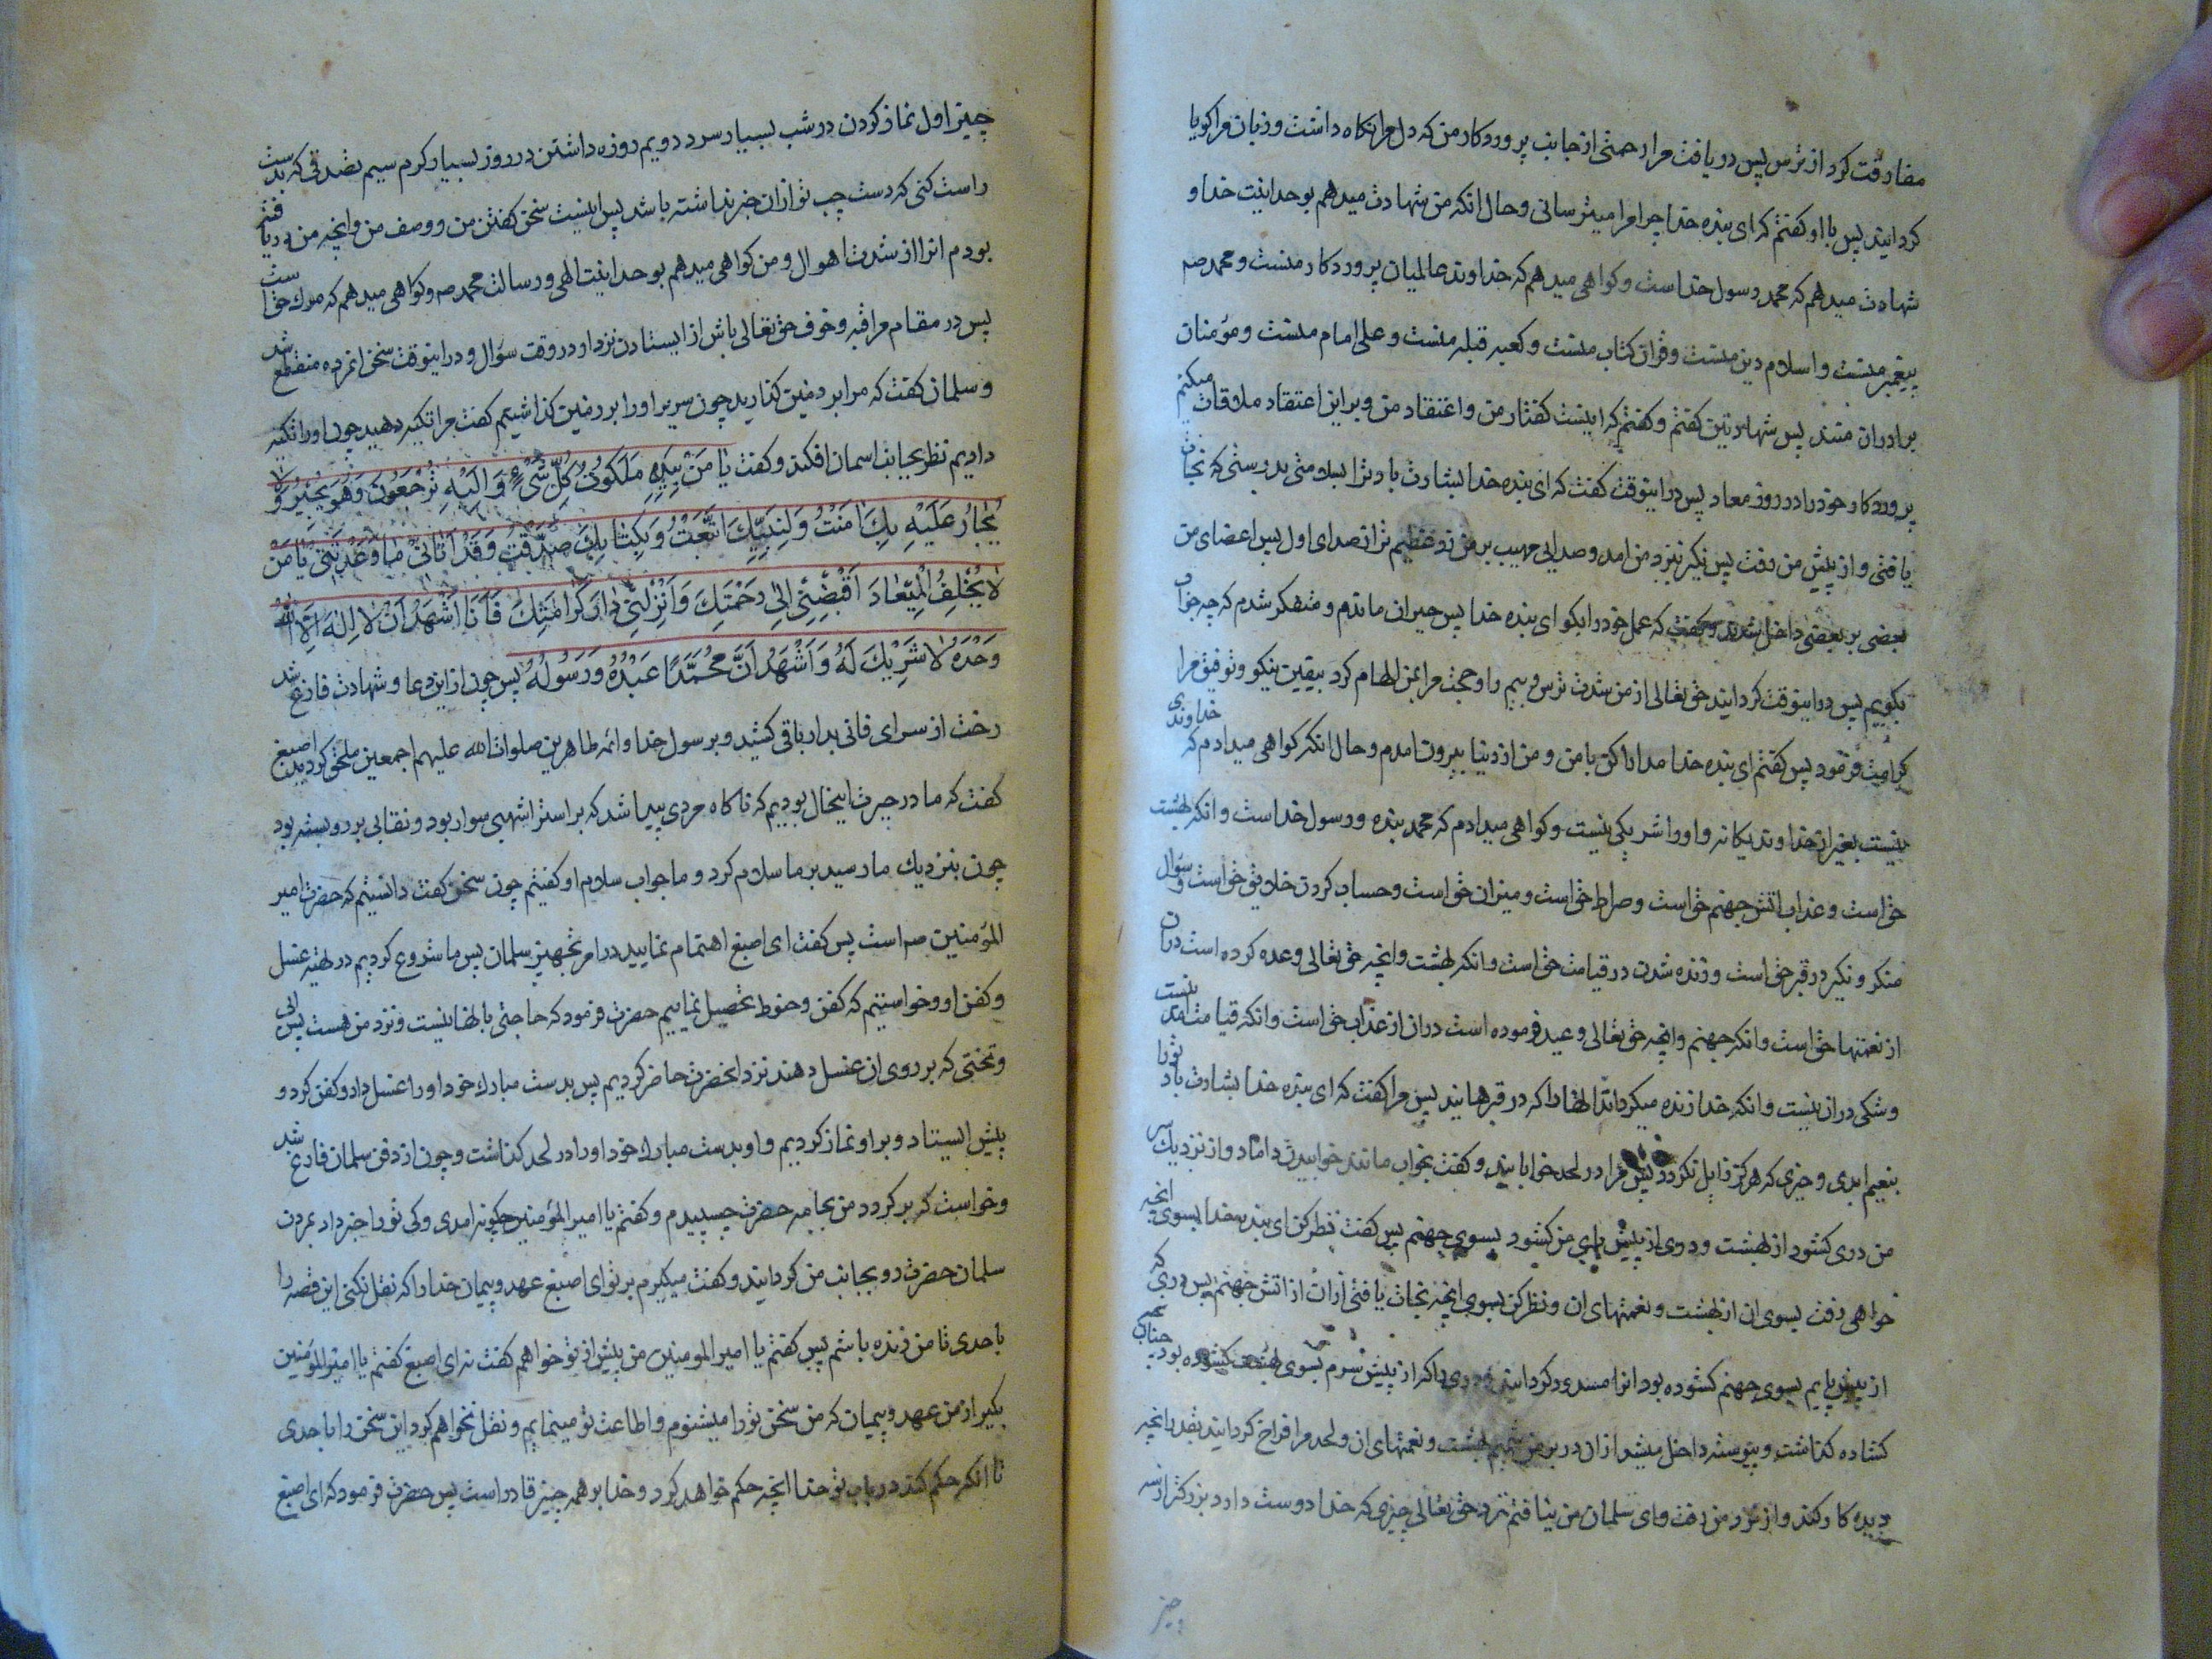 مفارقت کرد از ترس پس دریافت مرا رحمتی از جانب پروردکار من که دل مرا نکاه داشت و زبان مرا کویا
کردانید پس با او کفتم که ای بنده خدا چرا مرا میترسانی و حال انکه من شهادت میدهم بوحدانیت خدا و
شهادت میدهم که محمد رسول خداست و کواهی میدهم که خداوند عالمیان پروردکار منست و محمد صم
پیغمبر منست و اسلام دین منست و قران کتاب منست و کعبه قبله منست و علی امام منست و مؤمنان
برادران منند پس شهادتین کفتم و کفتم که اینست کفتار من و اعتقاد من و بر این اعتقاد ملاقات میکنم
پروردکار خود را در روز معاد پس در اینوقت کفت که ای بنده خدا بشارت باد ترا بسلامتی بدرستی که نجات
یافتی و از پیش من رفت پس نکیر نیزد من امد و صدایی مهیب بر من زد عظیم تر از صدای اول پس اعضای من
بعضی بر بعضی داخل شدند و کفت که عمل خود را بکو ای بنده خدا پس حیران ماندم و متفکر شدم که چه جواب
بکویم پس در اینوقت کردانید حق تعالی از من شدت ترس و بیم را و حجت مرا بمن الهام کرد بیقین نیکو و توفیق مرا
کرامت فرمود پس کفتم ای بنده خدا مدارا کن با من و من از دنیا بیرون امدم و حال انکه کواهی میدادم که خداوندی
نیست بغیر از خداوند یکانه و او را شریکی نیست و کواهی میدادم که محمد بنده و رسول خداست و انکه بهشت
حق است و عذاب اتش جهنم حق است و صراط حق است و میزان حق است و حساب کردن خلایق حق است و سؤال
منکر و نکیر در قبر حق است و زنده شدن در قیامت حق است و انکه بهشت و انچه حق تعالی وعده کرده است دران
از نعمتها حق است و انکه جهنم و انچه حق تعالی وعید فرموده است دران از عذاب حق است و انکه قیامت امدنیست
و شکی دران نیست و انکه خدا زنده میکرداند انها را که در قبرهایند پس مرا کفت که ای بنده خدا بشارت باد تو را
بنعیم ابدی و خیری که هرکز زایل نکردد پس مرا در لحد خوابانید و کفت بخواب مانند خوابیدن داماد و از نزدیک سر
من دری کشود از بهشت و دری از پیش پای من کشود بسوی جهنم پس کفت نظر کن ای بنده خدا بسوی انچه
خواهی رفت بسوی ان از بهشت و نعمتهای ان و نظر کن بسوی انچه نجات یافتی ازان از اتش جهنم پس دری که
از پیش پایم بسوی جهنم کشوده بود انرا مسدود کردانید و دری را که از پیش سرم بسوی بهشت کشوده بود
کشاده کذاشت و پیوسته داخل میشد ازان در بر من نسیم بهشت و نعمتهای ان و لحد مرا فراخ کردانید بقدر انچه
دیده کار کند و از نزد من رفت و ای سلمان من نیافتم نزد حق تعالی چیزی که خدا دوست دارد بزرکتر از سه
چیز
چیز اول نماز کردن در شب بسیار سرد دویم روزه داشتن در روز بسیار کرم سیم تصدقی که بدست
راست کنی که دست چپ تو ازان خبر نداشته باشد پس اینست سخن کفتن من و وصف من و انچه من دریافته
بودم انرا از شدت اهوال و من کواهی میدهم بوحدانیت الهی و رسالت محمد صم و کواهی میدهم که مرک حق است
پس در مقام مراقبه و خوف حق تعالی باش از ایستادن نزد او در وقت سؤال و در اینوقت سخن انمرده منقطع شد
و سلمان کفت که مرا بر زمین کذارید چون سریر او را بر زمین کذاشتیم کفت مرا تکیه دهید چون او را تکیه
دادیم نظر بجانب اسمان افکند و کفت یَا مَنْ بِیَدِهِ مَلَکُوتُ کُلِّ شَیْءٍ وَ اِلَیْهِ تُرْجَعُونَ وَ هُوَ یُجِیرُ وَ لَا
یُجَارُ عَلَیْهِ بِکَ اٰمَنْتُ وَ لِنَبِیِّکَ اتَّبَعْتُ وَ بِکِتَابِکَ صَدَّقْتُ وَ قَدْ اَتَانِی مَا وَعَدْتَنِی یَا مَنْ
لَا یُخْلِفُ الْمِیعَادَ اَقْبِضْنِی اِلٰی رَحْمَتِکَ وَ اَنْزِلْنِی دَارَ کَرَامَتِکَ فَاَنَا اَشْهَدُ اَنْ لَا اِلٰهَ اِلَّا اللّٰهُ
وَحْدَهُ لَا شَرِیکَ لَهُ وَ اَشْهَدُ اَنَّ مُحَمَّدًا عَبْدُهُ وَ رَسُولُهُ پس چون از این دعا و شهادت فارغ شد
رخت از سرای فانی بدار باقی کشید و برسول خدا و ائمه طاهرین صلوات الله علیهم اجمعین ملحق کردید اصبغ
کفت که ما در حیرت اینحال بودیم که ناکاه مردی پیدا شد که بر استر اشهبی سوار بود و نقابی بر رو بسته بود
چون بنزدیک ما رسید بر ما سلام کرد و ما جواب سلام او کفتیم چون سخن کفت دانستیم که حضرت امیر
المؤمنین صم است پس کفت ای اصبغ اهتمام نمایید در امر تجهیز سلمان پس ما شروع کردیم در تهیه غسل
و کفن او و خواستیم که کفن و حنوط تحصیل نماییم حضرت فرمود که حاجتی بانها نیست و نزد من هست پس ابی
و تختی که بر روی ان غسل دهند نزد انحضرت حاضر کردیم پس بدست مبارک خود او را غسل داد و کفن کرد و
پیش ایستاد و بر او نماز کردیم و او بدست مبارک خود او را در لحد کذاشت و چون از دفن سلمان فارغ شد
و خواست که بر کردد من بجامه حضرت چسپیدم و کفتم یا امیر المؤمنین چکونه امدی و کی تو را خبر داد بمردن
سلمان حضرت رو بجانب من کردانید و کفت میکیرم بر تو ای اصبغ عهد و پیمان خدا را که نقل نکنی این قصه را
باحدی تا من زنده باشم پس کفتم یا امیر المومنین من پیش از تو خواهم کفت نه ای اصبغ کفتم یا امیر المؤمنین
بکیر از من عهد و پیمان که من سخن تو را میشنوم و اطاعت تو مینمایم و نقل نخواهم کرد این سخن را باحدی
تا انکه حکم کند در باب تو خدا انچه حکم خواهد کرد و خدا بر همه چیز قادر است پس حضرت فرمود که ای اصبغ